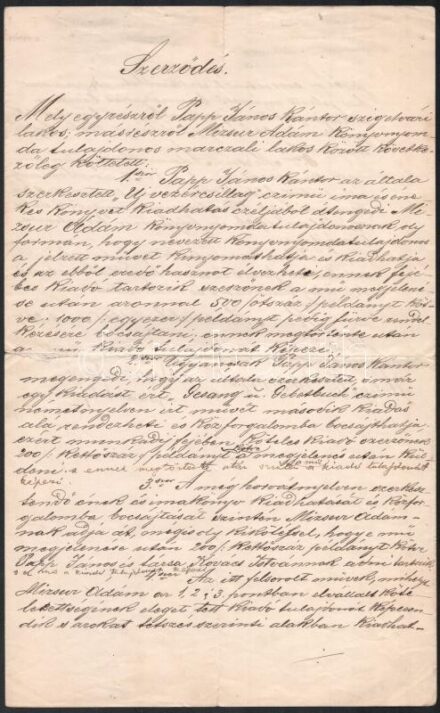 Szerződés.
Mely egyrészről Papp János Kántor szigetvári
lakos, másrészről Mizsur Ádám könyvnyom-
da tulajdonos marczali lakos között követke-
zőleg köttetett.
1ször Papp János Kántor az általa
szerkesztett „Uj vezércsillag" czimü ima és éne-
kes könyvet kiadhatás czéljából átengedi Mi-
zsur Ádám könyvnyomdatulajdonosnak oly
formán, hogy nevezett könyvnyomdatulajdonos
a jelzett művet kinyomathatja és kiadhatja
és az ebből eredő hasznot élvezheti, ennek fejé-
ben Kiadó tartozik szerzőnek a mű megjelené-
se után azonnal 500 /ötszáz/ példányt köt-
ve, 1000 /egyezer/ példányt pedig fűzve
kérésére bocsájtani, ennek megtörténte után
a mű Kiadó tulajdonát képezi.
2szor Ugyancsak Papp János Kántor
megengedi, hogy az általa szerkesztett s már
egy kiadást ért „Gesang u. Gebetbuch" czimü
németnyelven írt művét második kiadás
alá rendezheti és közforgalomba bocsájthatja
ezért munkadíj fejében köteles Kiadó szerzőnek
200 /kettőszáz/ példányt kötve a megjelenés után kül-
deni s ennek megtörténte után a mű a kiadó tulajdonát
képezi.
3szor A még horvátnyelven szerkesz-
tendő ének és imakönyv kiadhatását és közfor-
galomba bocsájtását szintén Mizsur Ádám-
nak adja át, mégis oly kikötéssel, hogy e mű
megjelenése után 200 /kettőszáz/ példányt kötve
Papp János és társa Kovács Istvánnak adni tartozik
s ez a kiadó tulajdonát képezi.
4szer Az itt felsorolt művek, mihelyt
Mizsur Ádám az 1, 2 és 3. pontban elvállalt köte-
lezettségének eleget tett Kiadó tulajdonát képezen-
dik s azokat tetszés szerinti alakban kiadhat-